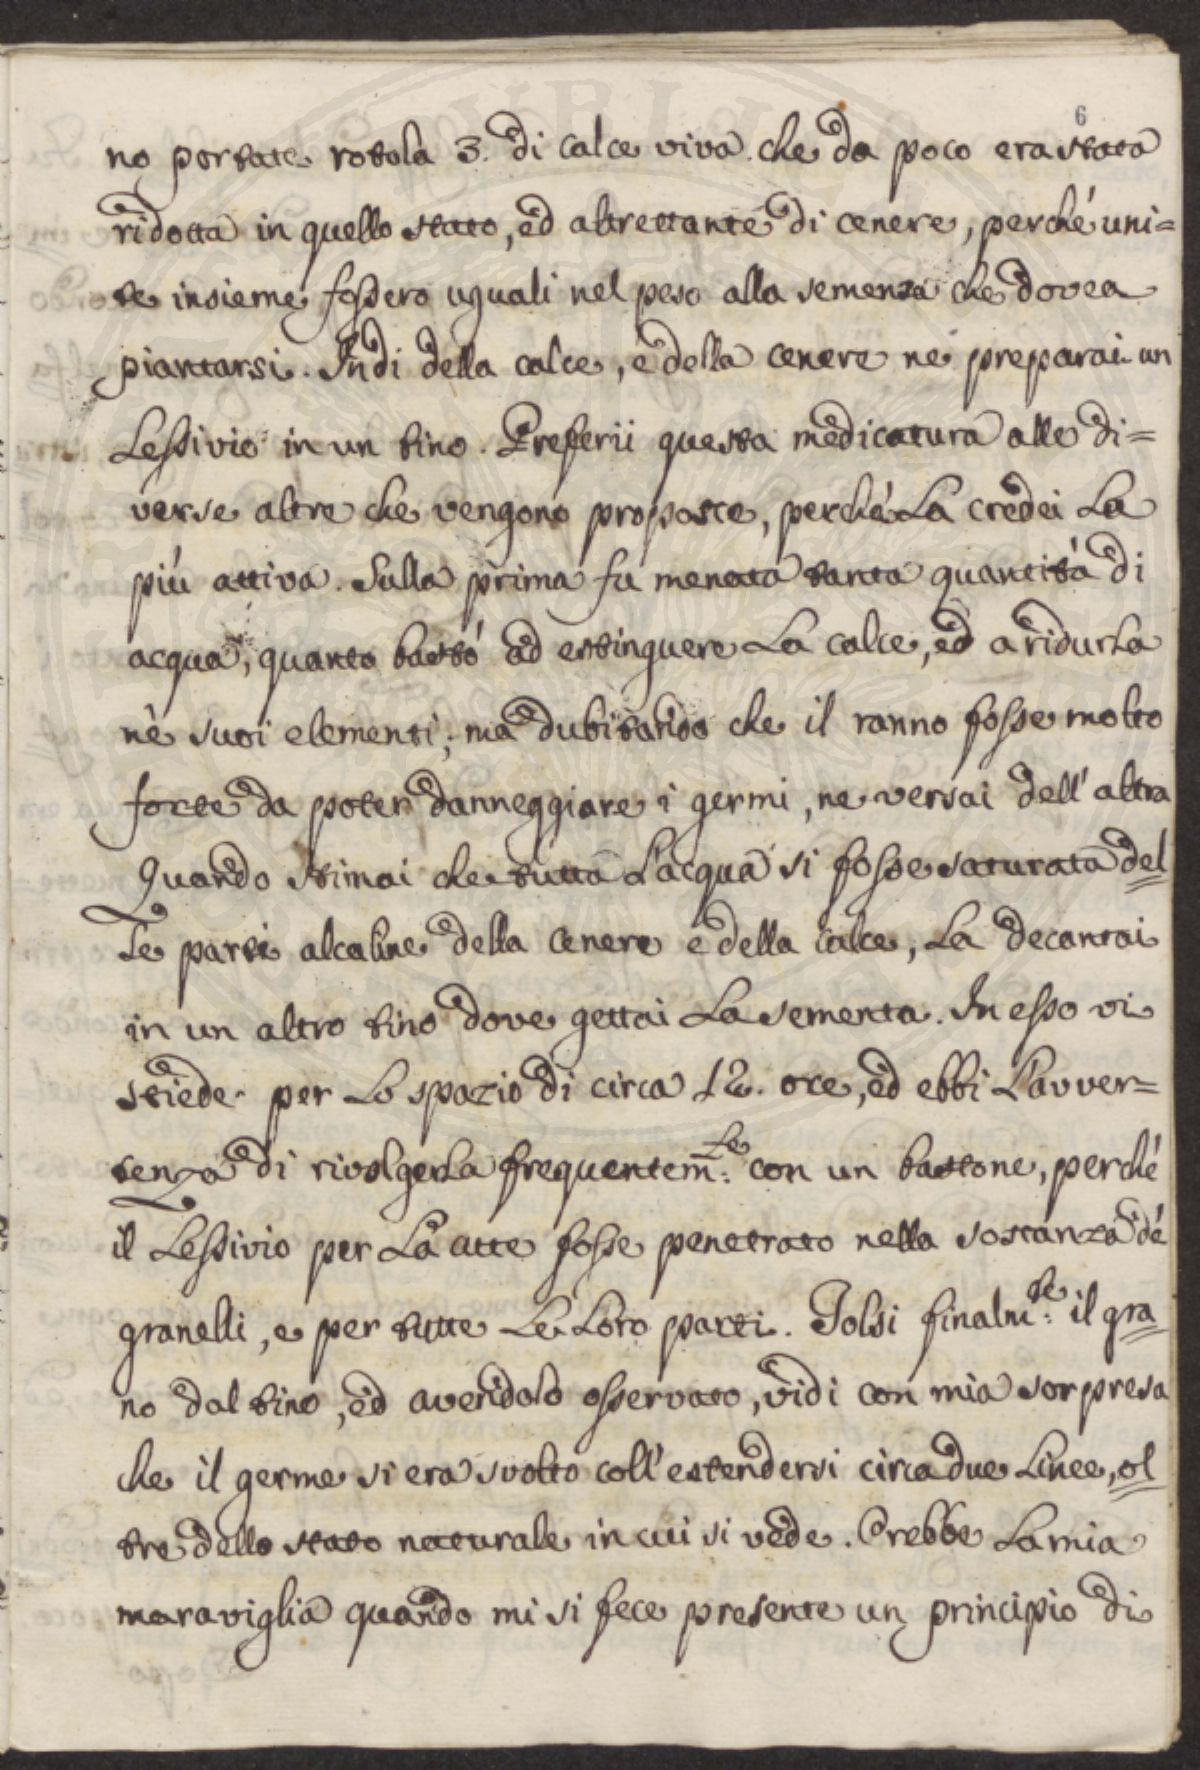 6
no portate rotola 3. di calce viva che da poco era stata
ridotta in quello stato, ed altrettante di cenere, perché uni=
te insieme fossero uguali nel peso alla semenza che dovea
piantarsi. Indi della calce, e della cenere ne preparai un
Lessivio in un tino. Preferii questa medicatura alle di=
verse altre che vengono proposte, perché La credei La
più attiva. Sulla prima fu menata tanta quantità di
acqua, quanto bastò ad estinguere La calce, ed a ridurla
nè suoi elementi; ma dubitando che il ranno fosse molto
forte da poter danneggiare i germi, ne versai dell'altra
Quando stimai che tutta L'acqua si fosse saturata del
le parti alcaline della cenere e della calce, La decantai
in un altro tino dove gettai La sementa. In esso vi
stiede per Lo spazio di circa 12. ore, ed ebbi L'avver=
tenza di rivolgerla frequentem:te con un bastone, perché
il Lessivio per La atte fosse penetrato nella sostanza dé
granelli, e per tutte Le Loro parti. Tolsi finalm:te il gra
no dal tino, ed avendolo osservato, vidi con mia sorpresa
che il germe si era svolto coll'estendersi circa due Linee, ol
tre dello stato naturale in cui si vede. Crebbe La mia
maraviglia quando mi si fece presente un principio di